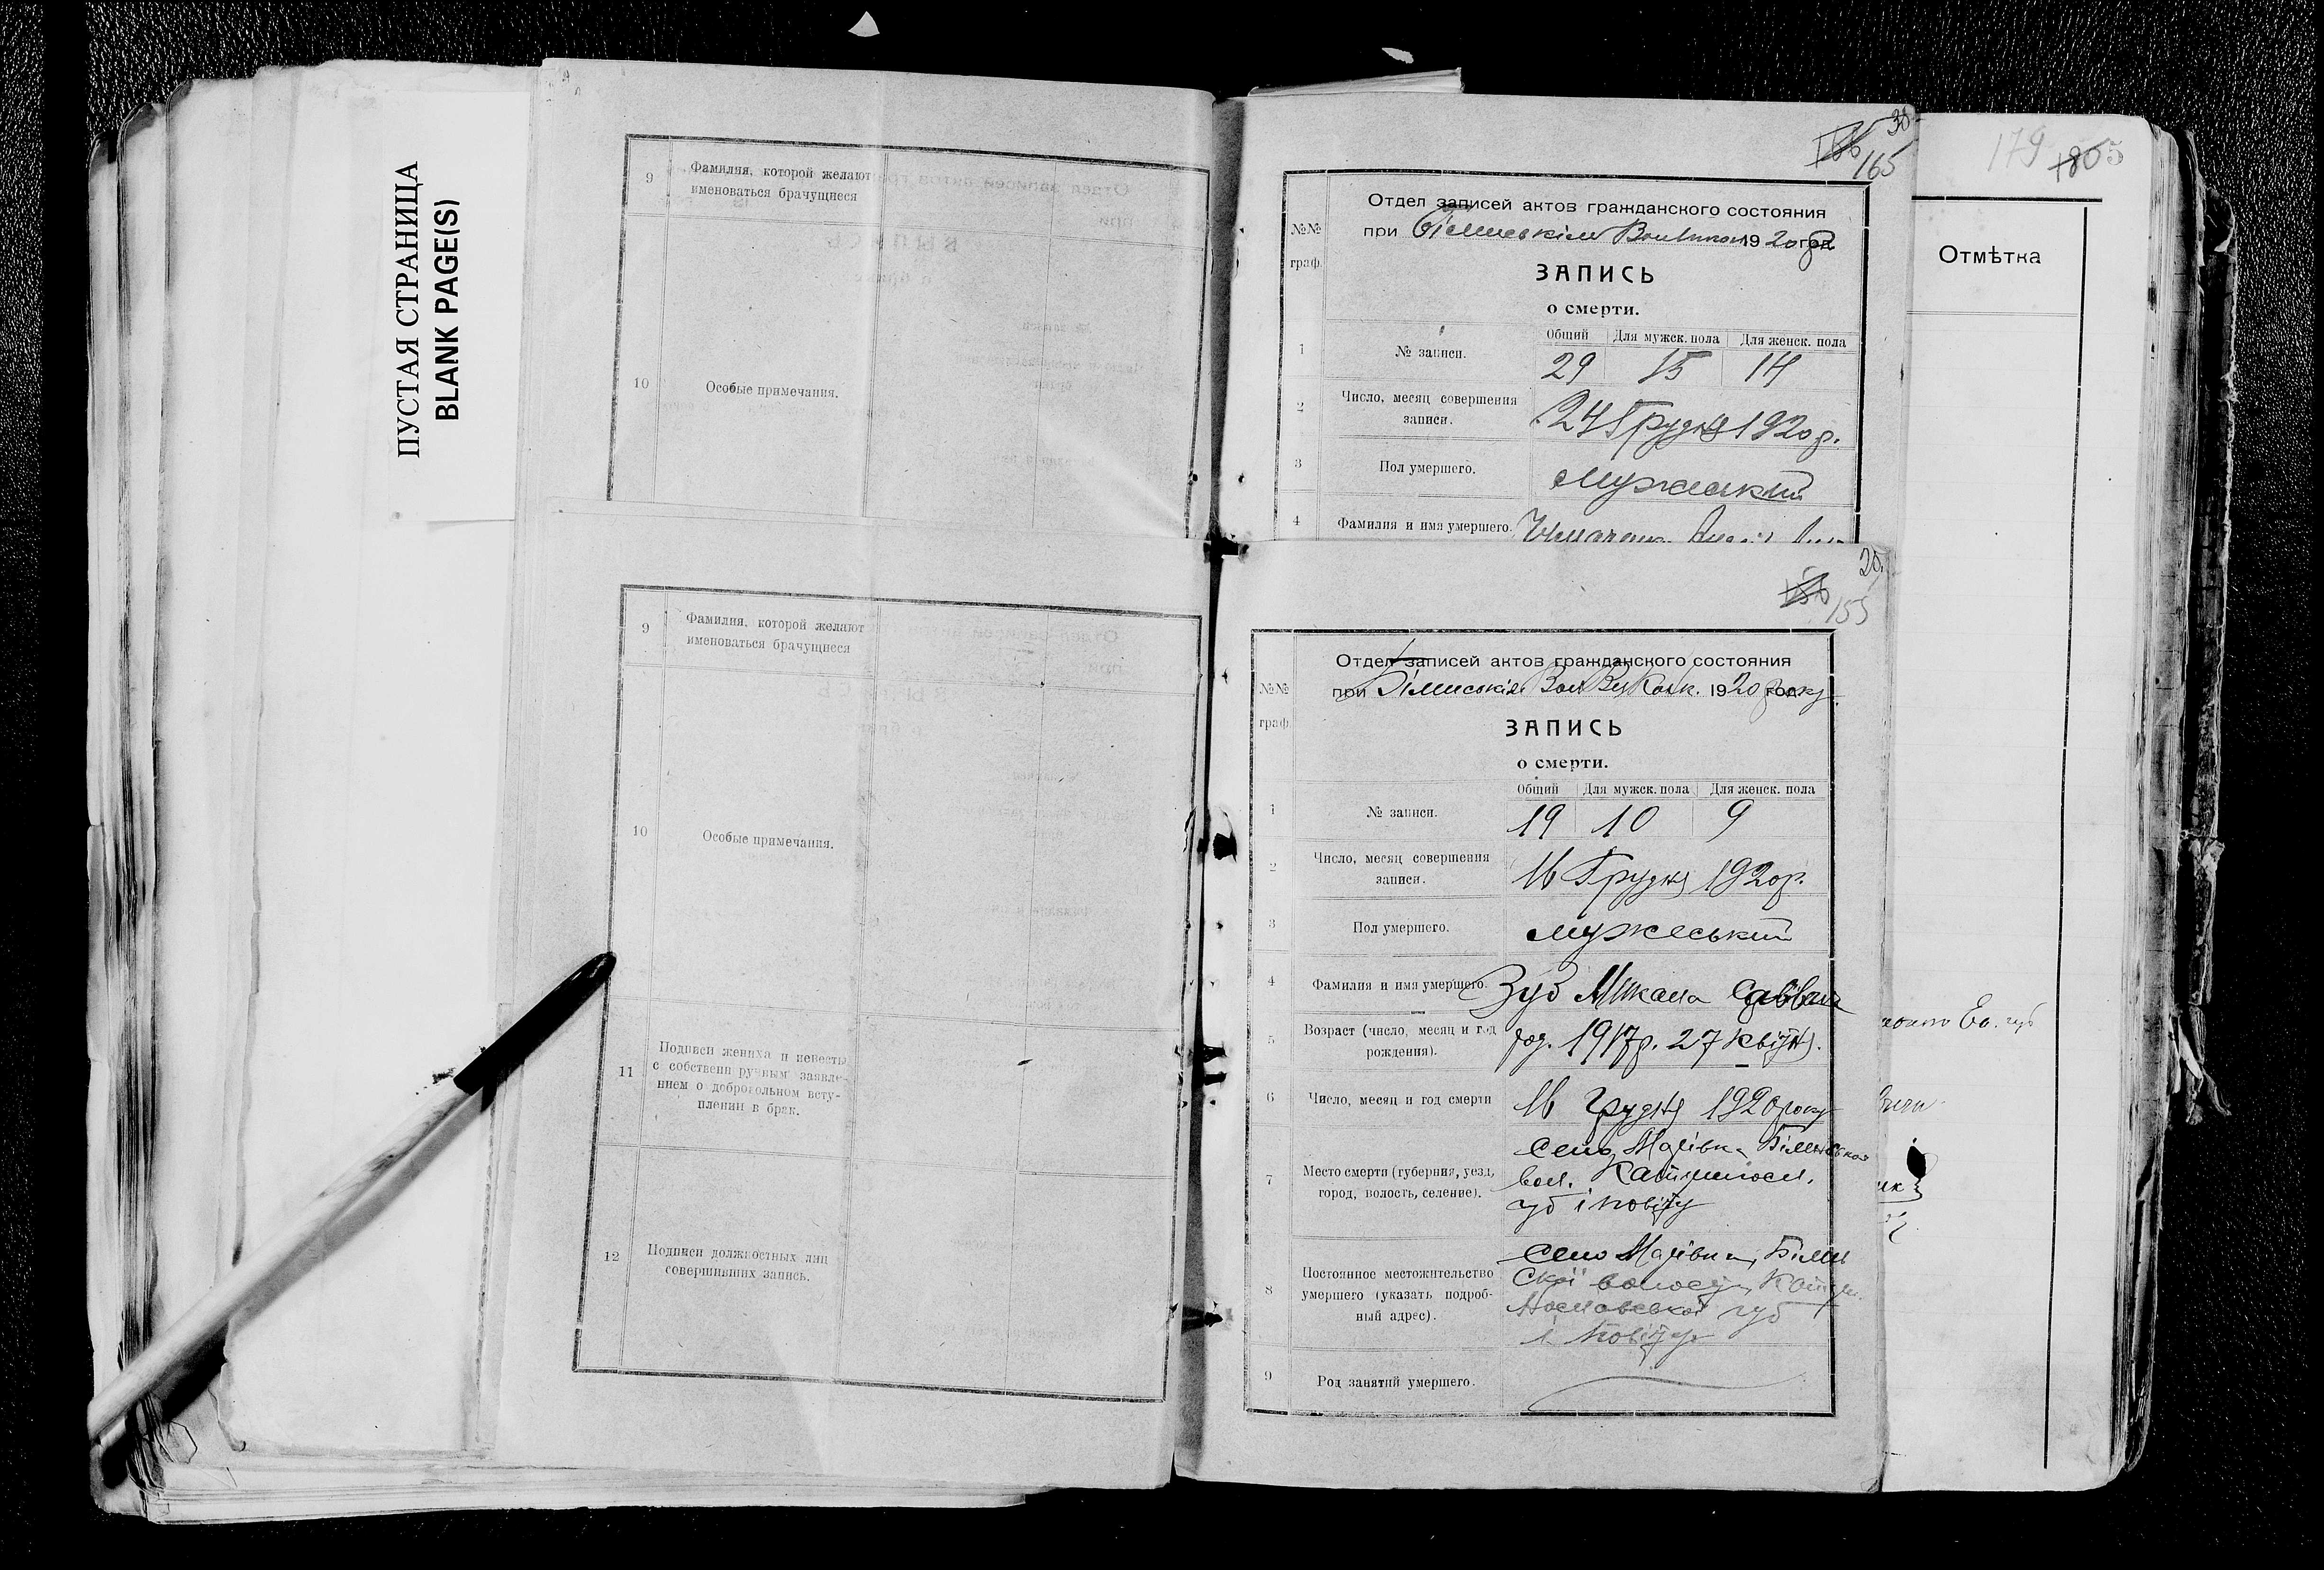 ПУСТАЯ СТРАНИЦА
BLANK PAGE(S)
9
Фамилия, которой желают
именоваться брачущиеся
10
Особые примечания.
9
Фамилия, которой желают
именоваться брачущиеся
10
Особые примечания.
11
Подписи жениха и невесты
с собственн ручным заявле-
нием о добровольном всту-
плении в брак.
12
Подписи должностных лиц
совершивших запись.
38
166
165
Отдел записей актов гражданского состояния
при 1920 год
№№
граф.
ЗАПИСЬ
о смерти.
Общий Для мужск. пола Для женск. пола
1 № записи. 29 15 14
2 Число, месяц совершения
записи. 24 Грудня 1920 р.
3 Пол умершего. Мужеський
4 Фамилия и имя умершего.
20.
156
155
Отдел записей актов гражданского состояния
при 1920 року
№№
граф.
ЗАПИСЬ
о смерти.
Общий Для мужск. пола Для женск. пола
1 № записи. 19 10 9
2 Число, месяц совершения
записи. 16 Грудня 1920р.
3 Пол умершего. мужеський
4 Фамилия и имя умершего. Зуб Микола
5 Возраст (число, месяц и год
рождения). 1917р. 27 квітня.
6 Число, месяц и год смерти 16 грудня 1920 року
7 Место смерти (губерния, уезд,
город, волость, селение). село
вол.
губ і повіту
8 Постоянное местожительство
умершего (указать подроб-
ный адрес). село
ської волости,
губ
і повіту
9 Род занятий умершего.
179
1805
Отмѣтка